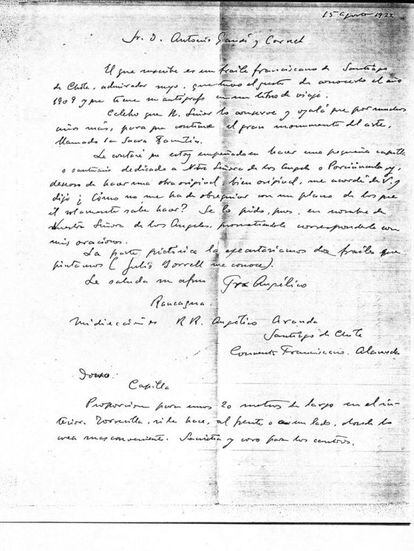 15 agosto 1922
Sr. D. Antonio Gaudí y Cornet
El que suscribe es un fraile franciscano de Santiago
de Chile, admirador suyo, que tuvo el gusto de conocerlo el año
1909 y que tiene su autógrafo en un libro de viaje.
Celebro que N. Señor lo conserve y ojalá que por muchos
años más, para que continúe el gran monumento del arte,
llamado la Sacra Familia.
Le contaré que estoy empeñado en hacer una pequeña capilla
o santuario dedicado a Ntra Señora de los Angeles o Porciúncula y,
deseoso de hacer una obra original, bien original, me acordé de V. y
dije ¿Cómo no me ha de obsequiar con un plano de los que
él solamente sabe hacer? Se lo pido, pues, en nombre de
Nuestra Señora de los Angeles, prometiéndole corresponderle con
mis oraciones.
La parte pictórica la ejecutaríamos dos frailes que
pintamos (Julio Borrell me conoce).
Le saluda su afmo Fra Angélico
Rancagua
mi dirección es R.R. Angélico Aranda
Santiago de Chile
Convento Franciscano. Alameda
Capilla
Proporción para unos 20 metros de largo en el in-
terior. Torrecilla, si la hace, al frente o a un lado, donde lo
crea mas conveniente. Sacristía y coro para los cantores.